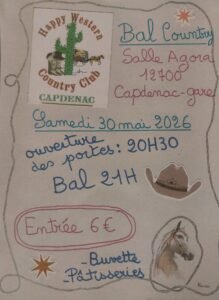 Happy Western
Country Club
CAPDENAC
Bal Country
Salle Agora
12700
Capdenac-gare
Samedi 30 mai 2026
ouverture
des portes: 20H30
Bal 21H
Entrée 6 €
-Buvette
-Pâtisseries